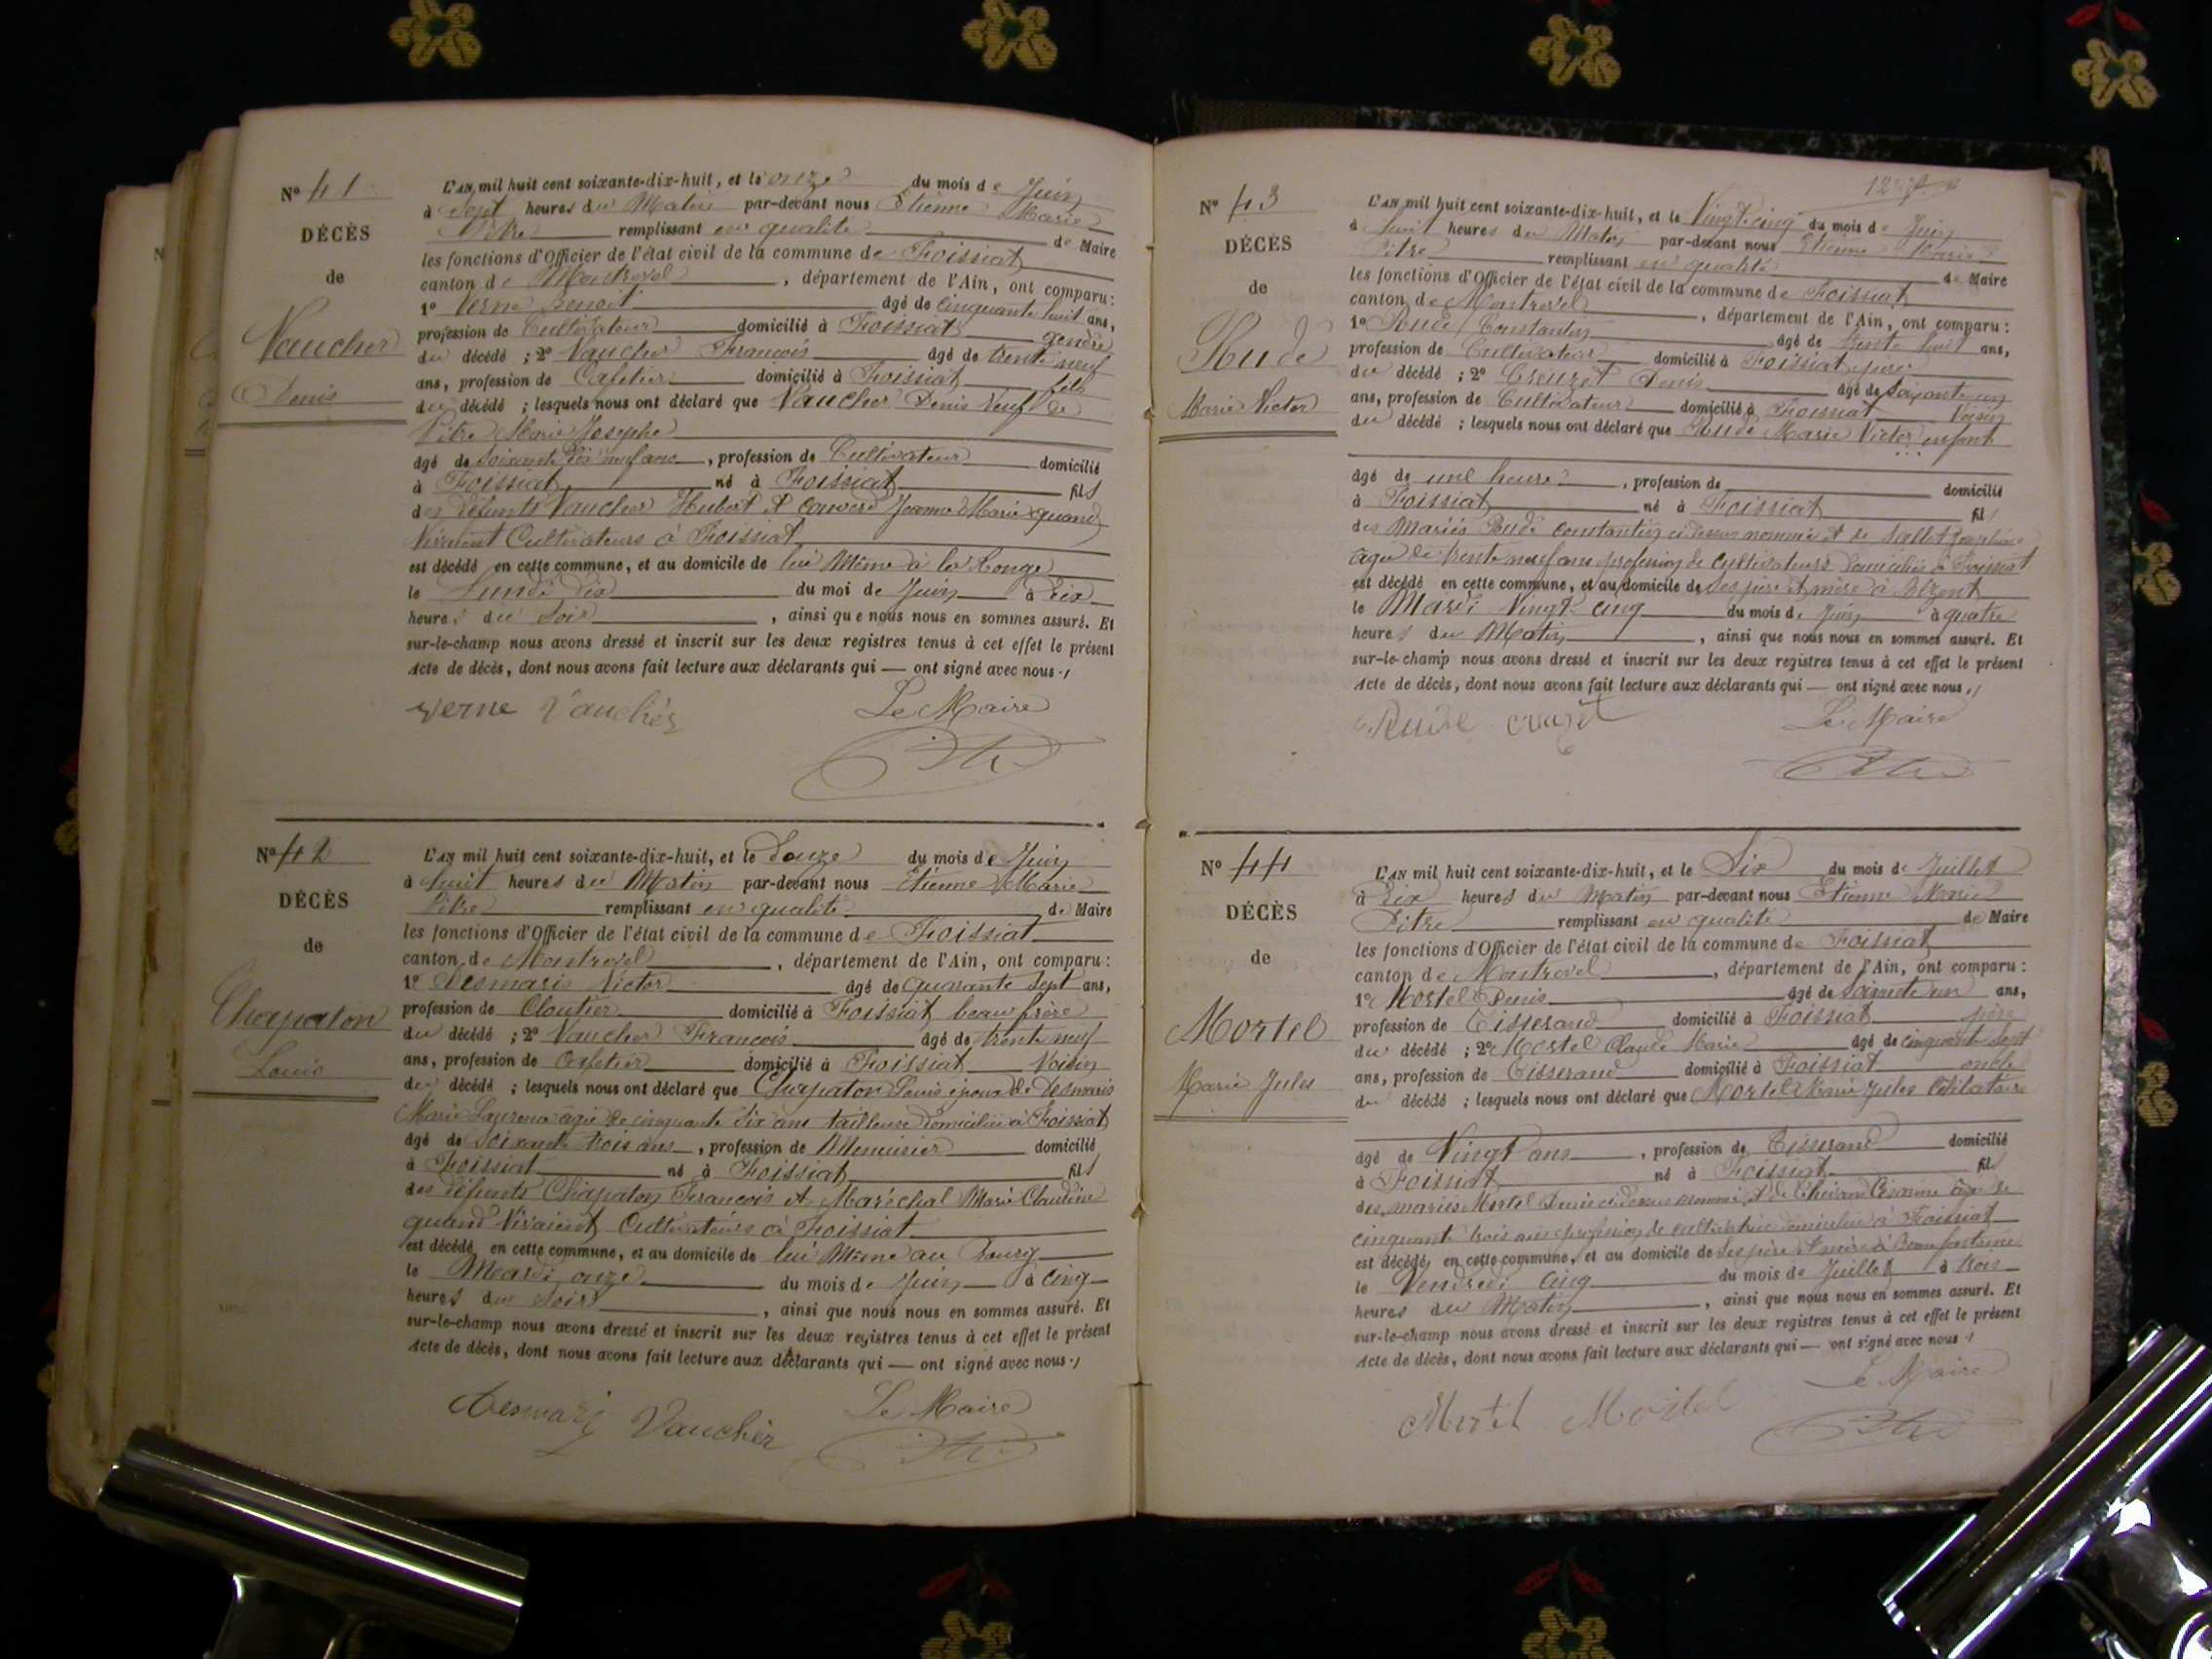 N° 41
DÉCÈS
de
Vaucher
Denis
L'AN mil huit cent soixante-dix-huit, et le onze du mois de Juin
à Sept heures du Matin par-devant nous Etienne Marie
Pitre remplissant en qualité de Maire
les fonctions d'Officier de l'état civil de la commune de Foissiat
canton de Montrevel, département de l'Ain, ont comparu :
1° Verne Benoit âgé de cinquante huit ans,
profession de Cultivateur domicilié à Foissiat gendre
du décédé ; 2° Vaucher François âgé de trente neuf
ans, profession de Cafetier domicilié à Foissiat fils
du décédé ; lesquels nous ont déclaré que Vaucher Denis Veuf de
Pitre Marie Josephe
âgé de Soixante dix neuf ans, profession de Cultivateur domicilié
à Foissiat né à Foissiat fils
des défunts Vaucher Hubert et Convert Jeanne Marie quand
Vivaient Cultivateurs à Foissiat
est décédé en cette commune, et au domicile de lui Même à la
le Lundi dix du moi de Juin à Dix
heures du Soir, ainsi que nous nous en sommes assuré. Et
sur-le-champ nous avons dressé et inscrit sur les deux registres tenus à cet effet le présent
Acte de décès, dont nous avons fait lecture aux déclarants qui — ont signé avec nous.
verne Vaucher Le Maire
Pitre
N° 42
DÉCÈS
de
Chapaton
Louis
L'AN mil huit cent soixante-dix-huit, et le Douze du mois de Juin
à huit heures du Matin par-devant nous Etienne Marie
Pitre remplissant en qualité de Maire
les fonctions d'Officier de l'état civil de la commune de Foissiat
canton de Montrevel, département de l'Ain, ont comparu :
1° Desmaris Victor âgé de quarante Sept ans,
profession de Cloutier domicilié à Foissiat beau frère
du décédé ; 2° Vaucher François âgé de trente neuf
ans, profession de Cafetier domicilié à Foissiat Voisin
du décédé ; lesquels nous ont déclaré que Chapaton Louis époux de Desmaris
Marie âgée de cinquante Six ans tailleuse domiciliée à Foissiat
âgé de Soixante trois ans, profession de Menuisier domicilié
à Foissiat né à Foissiat fils
des défunts Chapaton François et Maréchal Marie Claudine
quand Vivaient Cultivateurs à Foissiat
est décédé en cette commune, et au domicile de lui Même au Bourg
le Mardi onze du mois de Juin à cinq
heures du Soir, ainsi que nous nous en sommes assuré. Et
sur-le-champ nous avons dressé et inscrit sur les deux registres tenus à cet effet le présent
Acte de décès, dont nous avons fait lecture aux déclarants qui — ont signé avec nous.
Desmaris Vaucher Le Maire
Pitre
N° 43
DÉCÈS
de
Rude
Marie Victor
L'AN mil huit cent soixante-dix-huit, et le Vingt-cinq du mois de Juin
à huit heures du Matin par-devant nous Etienne Marie
Pitre remplissant en qualité de Maire
les fonctions d'Officier de l'état civil de la commune de Foissiat
canton de Montrevel, département de l'Ain, ont comparu :
1° Rude Constantin âgé de trente huit ans,
profession de Cultivateur domicilié à Foissiat père
du décédé ; 2° Creuzet Denis âgé de Soixante un
ans, profession de Cultivateur domicilié à Foissiat Voisin
du décédé ; lesquels nous ont déclaré que Rude Marie Victor enfant
âgé de une heure, profession de domicilié
à Foissiat né à Foissiat fils
des Mariés Rude Constantin ci dessus nommé et de
âgée de trente neuf ans profession de cultivateurs domiciliés à Foissiat
est décédé en cette commune, et au domicile de Ses père et mère à
le Mardi Vingt cinq du mois de Juin à quatre
heures du Matin, ainsi que nous nous en sommes assuré. Et
sur-le-champ nous avons dressé et inscrit sur les deux registres tenus à cet effet le présent
Acte de décès, dont nous avons fait lecture aux déclarants qui — ont signé avec nous.
Rude Le Maire
Pitre
N° 44
DÉCÈS
de
Mortel
Marie Jules
L'AN mil huit cent soixante-dix-huit, et le Six du mois de Juillet
à Dix heures du Matin par-devant nous Etienne Marie
Pitre remplissant en qualité de Maire
les fonctions d'Officier de l'état civil de la commune de Foissiat
canton de Montrevel, département de l'Ain, ont comparu :
1° Mortel Denis âgé de Soixante un ans,
profession de Tisserand domicilié à Foissiat père
du décédé ; 2° Mortel Claude Marie âgé de cinquante Sept
ans, profession de Tisserand domicilié à Foissiat oncle
du décédé ; lesquels nous ont déclaré que Mortel Marie Jules Célibataire
âgé de Vingt ans, profession de Tisserand domicilié
à Foissiat né à Foissiat fils
des mariés Mortel Denis ci dessus nommé et de âgée de
cinquante trois ans profession de cultivatrice domiciliée à Foissiat
est décédé en cette commune, et au domicile de Ses père et mère à
le Vendredi cinq du mois de Juillet à trois
heures du Matin, ainsi que nous nous en sommes assuré. Et
sur-le-champ nous avons dressé et inscrit sur les deux registres tenus à cet effet le présent
Acte de décès, dont nous avons fait lecture aux déclarants qui — ont signé avec nous.
Le Maire
Mortel Mortel
Pitre